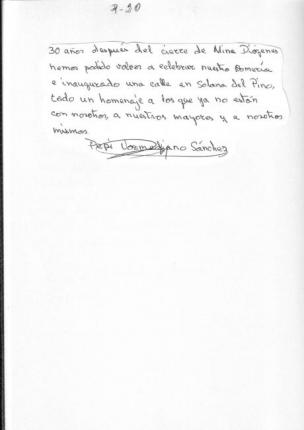 7-20
30 años después del cierre de Mina Diógenes
hemos podido volver a celebrar nuestra Romería
e inaugurado una calle en Solana del Pino,
todo un homenaje a los que ya no están
con nosotros, a nuestros mayores y a nosotros
mismos
Pepi Sánchez